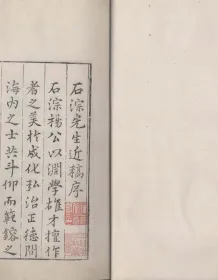 石淙先生近稿序
石淙楊公以淵學雄才擅作
者之美於成化弘治正德間
海內之士共斗仰而範鎔之